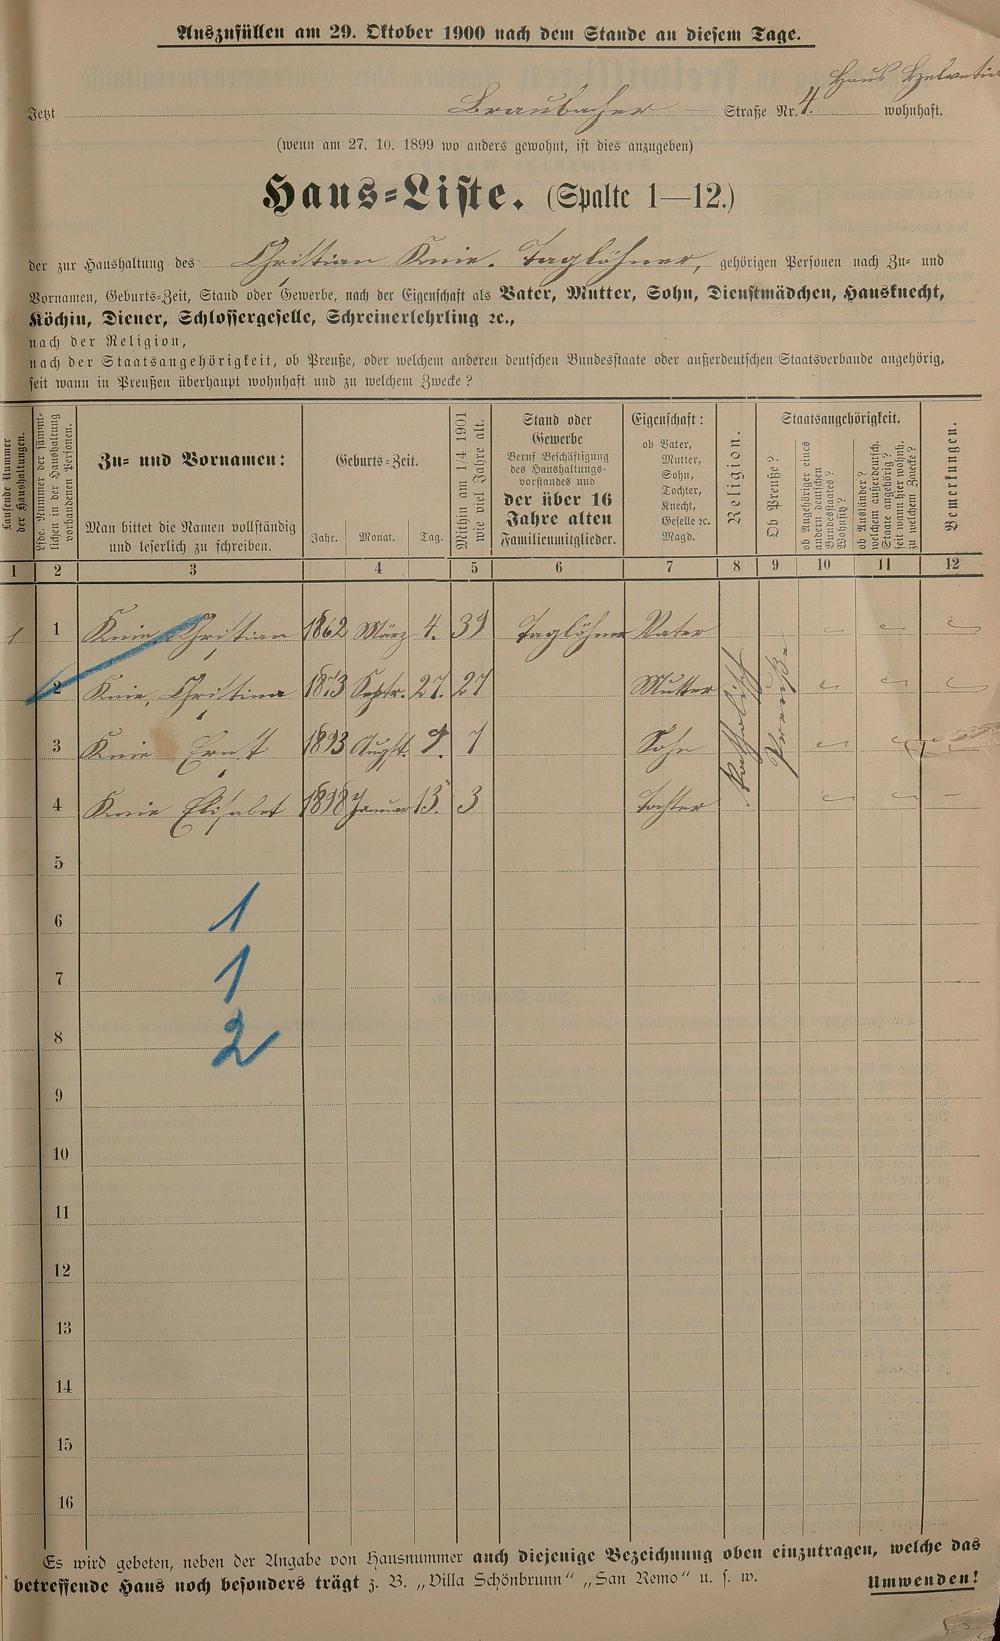 Auszufüllen am 29. Oktober 1900 nach dem Stande an diesem Tage.
Haus Helvetia
Jetzt Braubacher Straße Nr. 4. wohnhaft.
(wenn am 27. 10. 1899 wo anders gewohnt, ist dies anzugeben)
Haus-Liste. (Spalte 1—12.)
der zur Haushaltung des Christian Knie. Taglöhner, gehörigen Personen nach Zu- und
Vornamen, Geburts-Zeit, Stand oder Gewerbe, nach der Eigenschaft als Vater, Mutter, Sohn, Dienstmädchen, Hausknecht,
Köchin, Diener, Schlossergeselle, Schreinerlehrling ꝛc.,
nach der Religion,
nach der Staatsangehörigkeit, ob Preuße, oder welchem anderen deutschen Bundesstaate oder außerdeutschen Staatsverbande angehörig,
seit wann in Preußen überhaupt wohnhaft und zu welchem Zwecke?
Laufende Nummer der Haushaltungen.
Lfde. Nummer der sämmtlichen in der Haushaltung vorhandenen Personen.
Zu- und Vornamen:
Man bittet die Namen vollständig
und leserlich zu schreiben.
Geburts-Zeit.
Jahr. Monat. Tag.
Mithin am 1/4 1901
wie viel Jahre alt.
Stand oder
Gewerbe
Beruf Beschäftigung
des Haushaltungs-
vorstandes und
der über 16
Jahre alten
Familienmitglieder.
Eigenschaft:
ob Vater,
Mutter,
Sohn,
Tochter,
Knecht,
Geselle ꝛc.
Magd.
Religion.
Staatsangehörigkeit.
Ob Preuße?
ob Angehöriger eines
andern deutschen
Bundesstaates?
Wohnsitz?
ob Ausländer?
welchem außerdeutsch.
Staate angehörig?
seit wann hier wohnh.
zu welchem Zwecke?
Bemerkungen.
1 2 3 4 5 6 7 8 9 10 11 12
1 1 Knie, Christian 1862 März 4. 39 Taglöhner Vater
2 Knie, Christina 1873 Septr. 27. 27 Mutter
3 Knie Ernst 1893 Augst. 9. 7 Sohn
4 Knie Elisabet 1898 Januar 13. 3 Tochter
Katholisch
Preuße
5
6 1
7 1
8 2
9
10
11
12
13
14
15
16
Es wird gebeten, neben der Angabe von Hausnummer auch diejenige Bezeichnung oben einzutragen, welche das
betreffende Haus noch besonders trägt z. B. „Villa Schönbrunn" „San Remo" u. s. w.
Umwenden!